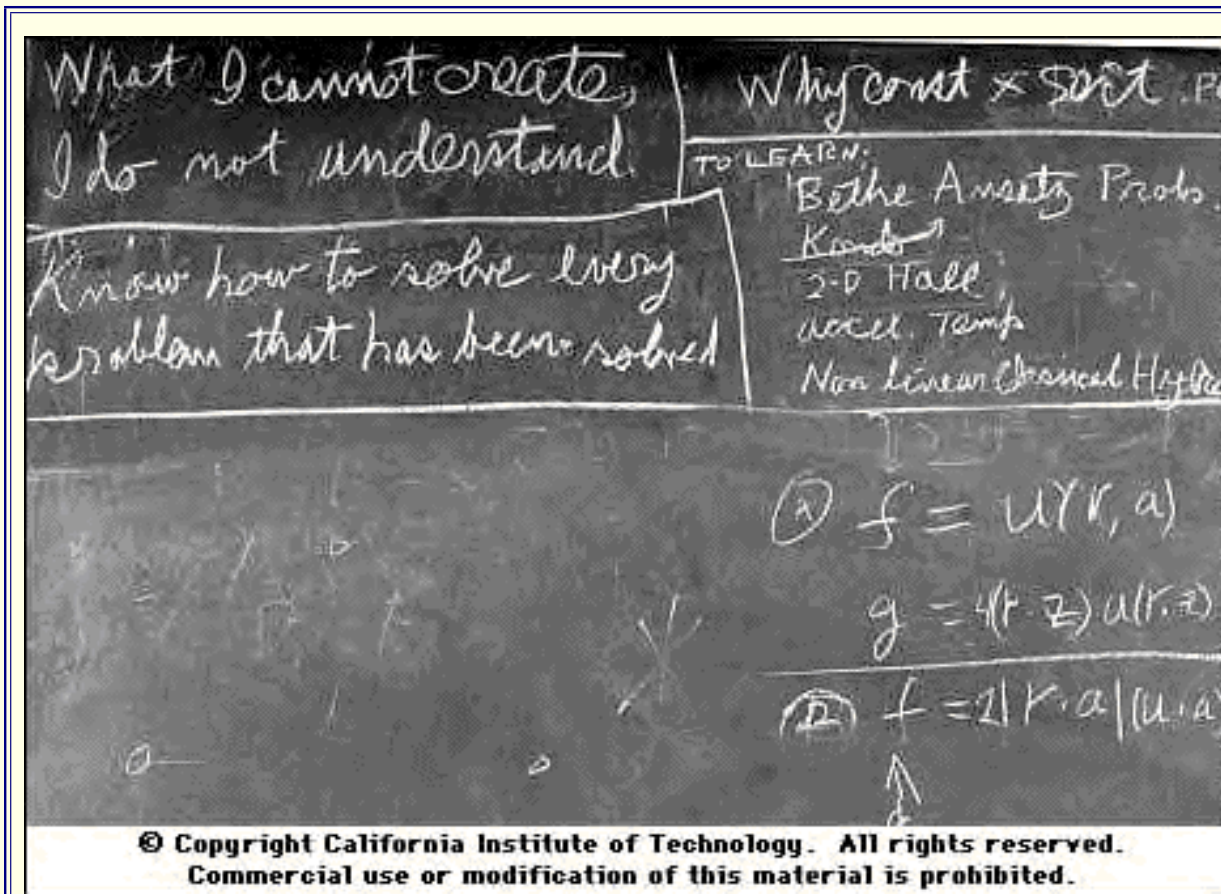 What I cannot create,
I do not understand.
Know how to solve every
problem that has been solved
Why const × sort
TO LEARN:
Bethe Ansatz Probs.
Kondo
2-D Hall
accel. Temp
Non linear Classical Hydro
f = u(r, a)
g = 4(r·z) u(r·z)
f = 2|r·a|(u·a)
© Copyright California Institute of Technology. All rights reserved.
Commercial use or modification of this material is prohibited.